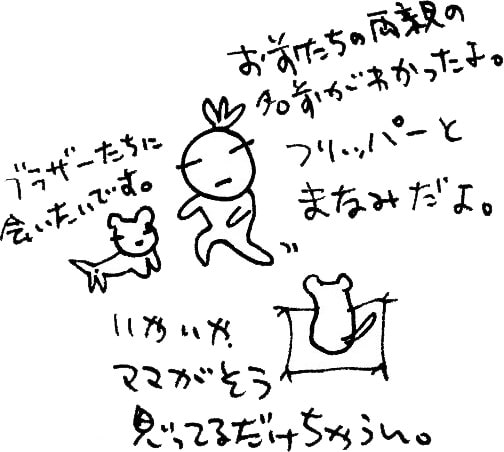 お前たちの両親の
名前がわかったよ。
フリッパーと
まなみだよ。
ブラザーたちに
会いたいです。
いやいや
ママがそう
見ってるだけちゃうん。